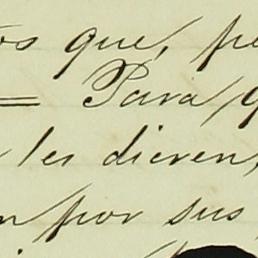 os que, pe
= Para q
les dieren,
n por sus